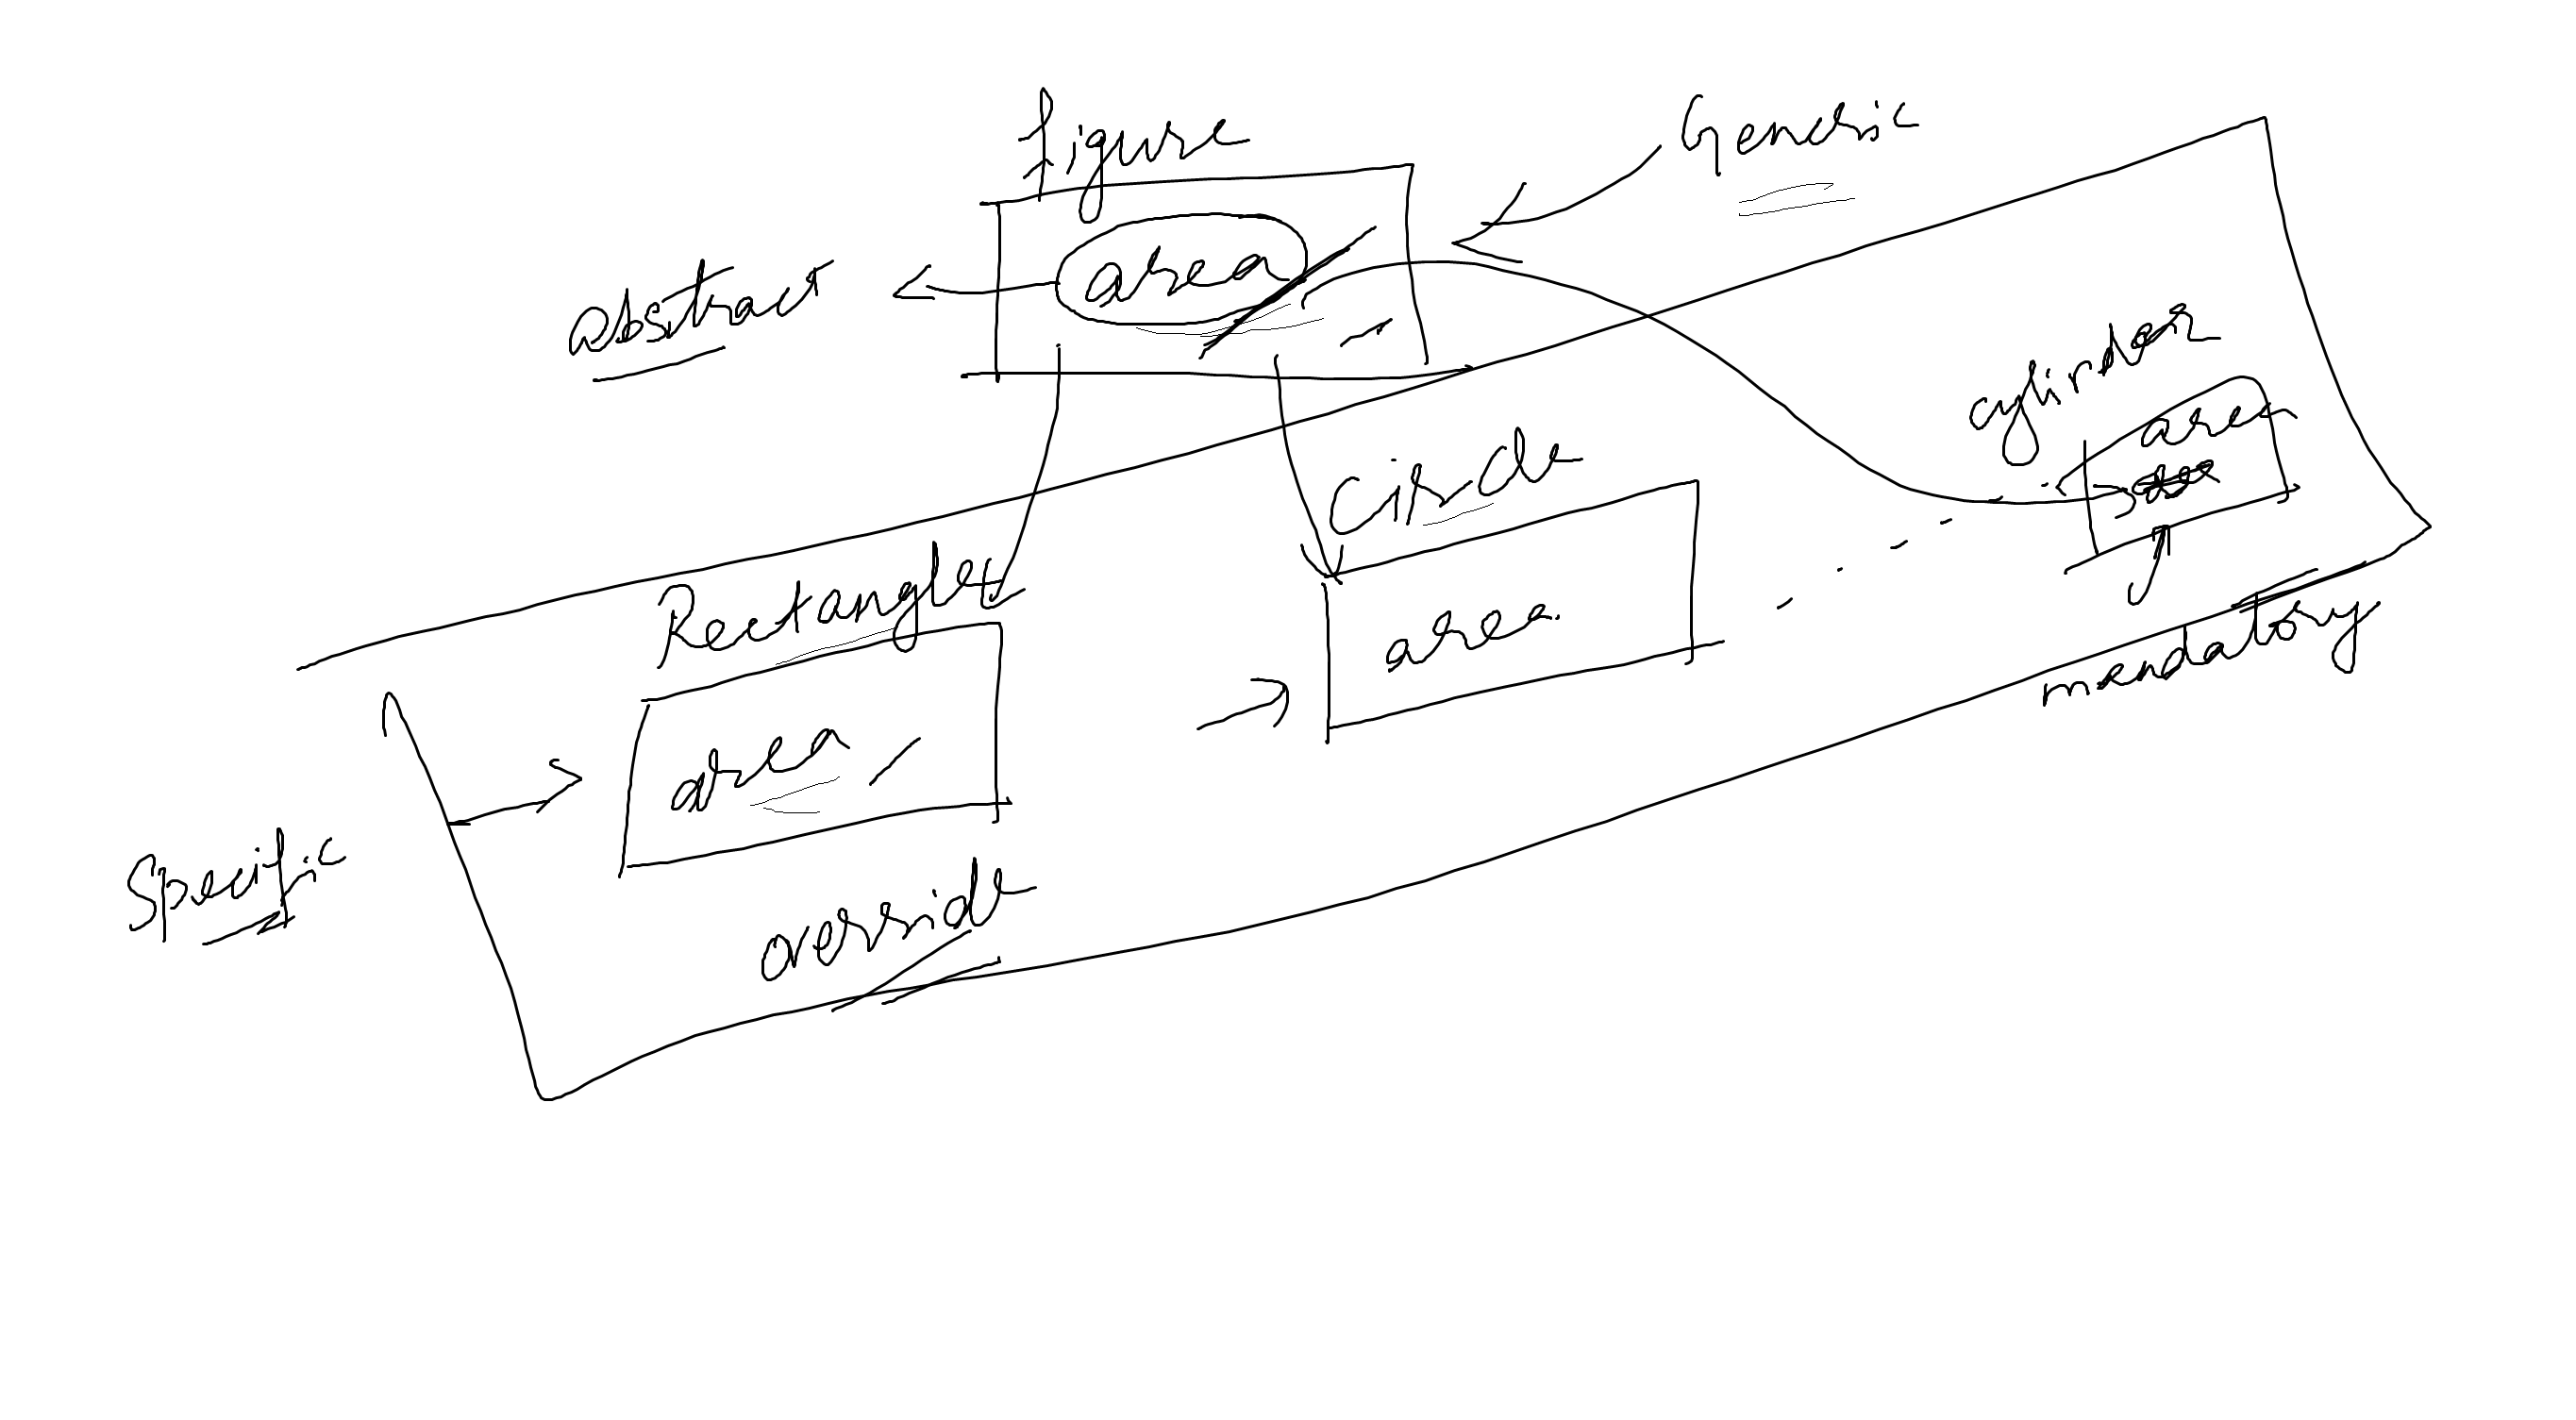 figure
Generic
area
abstract
cylinder
area
Circle
area
Rectangle
area
mandatory
Specific
override